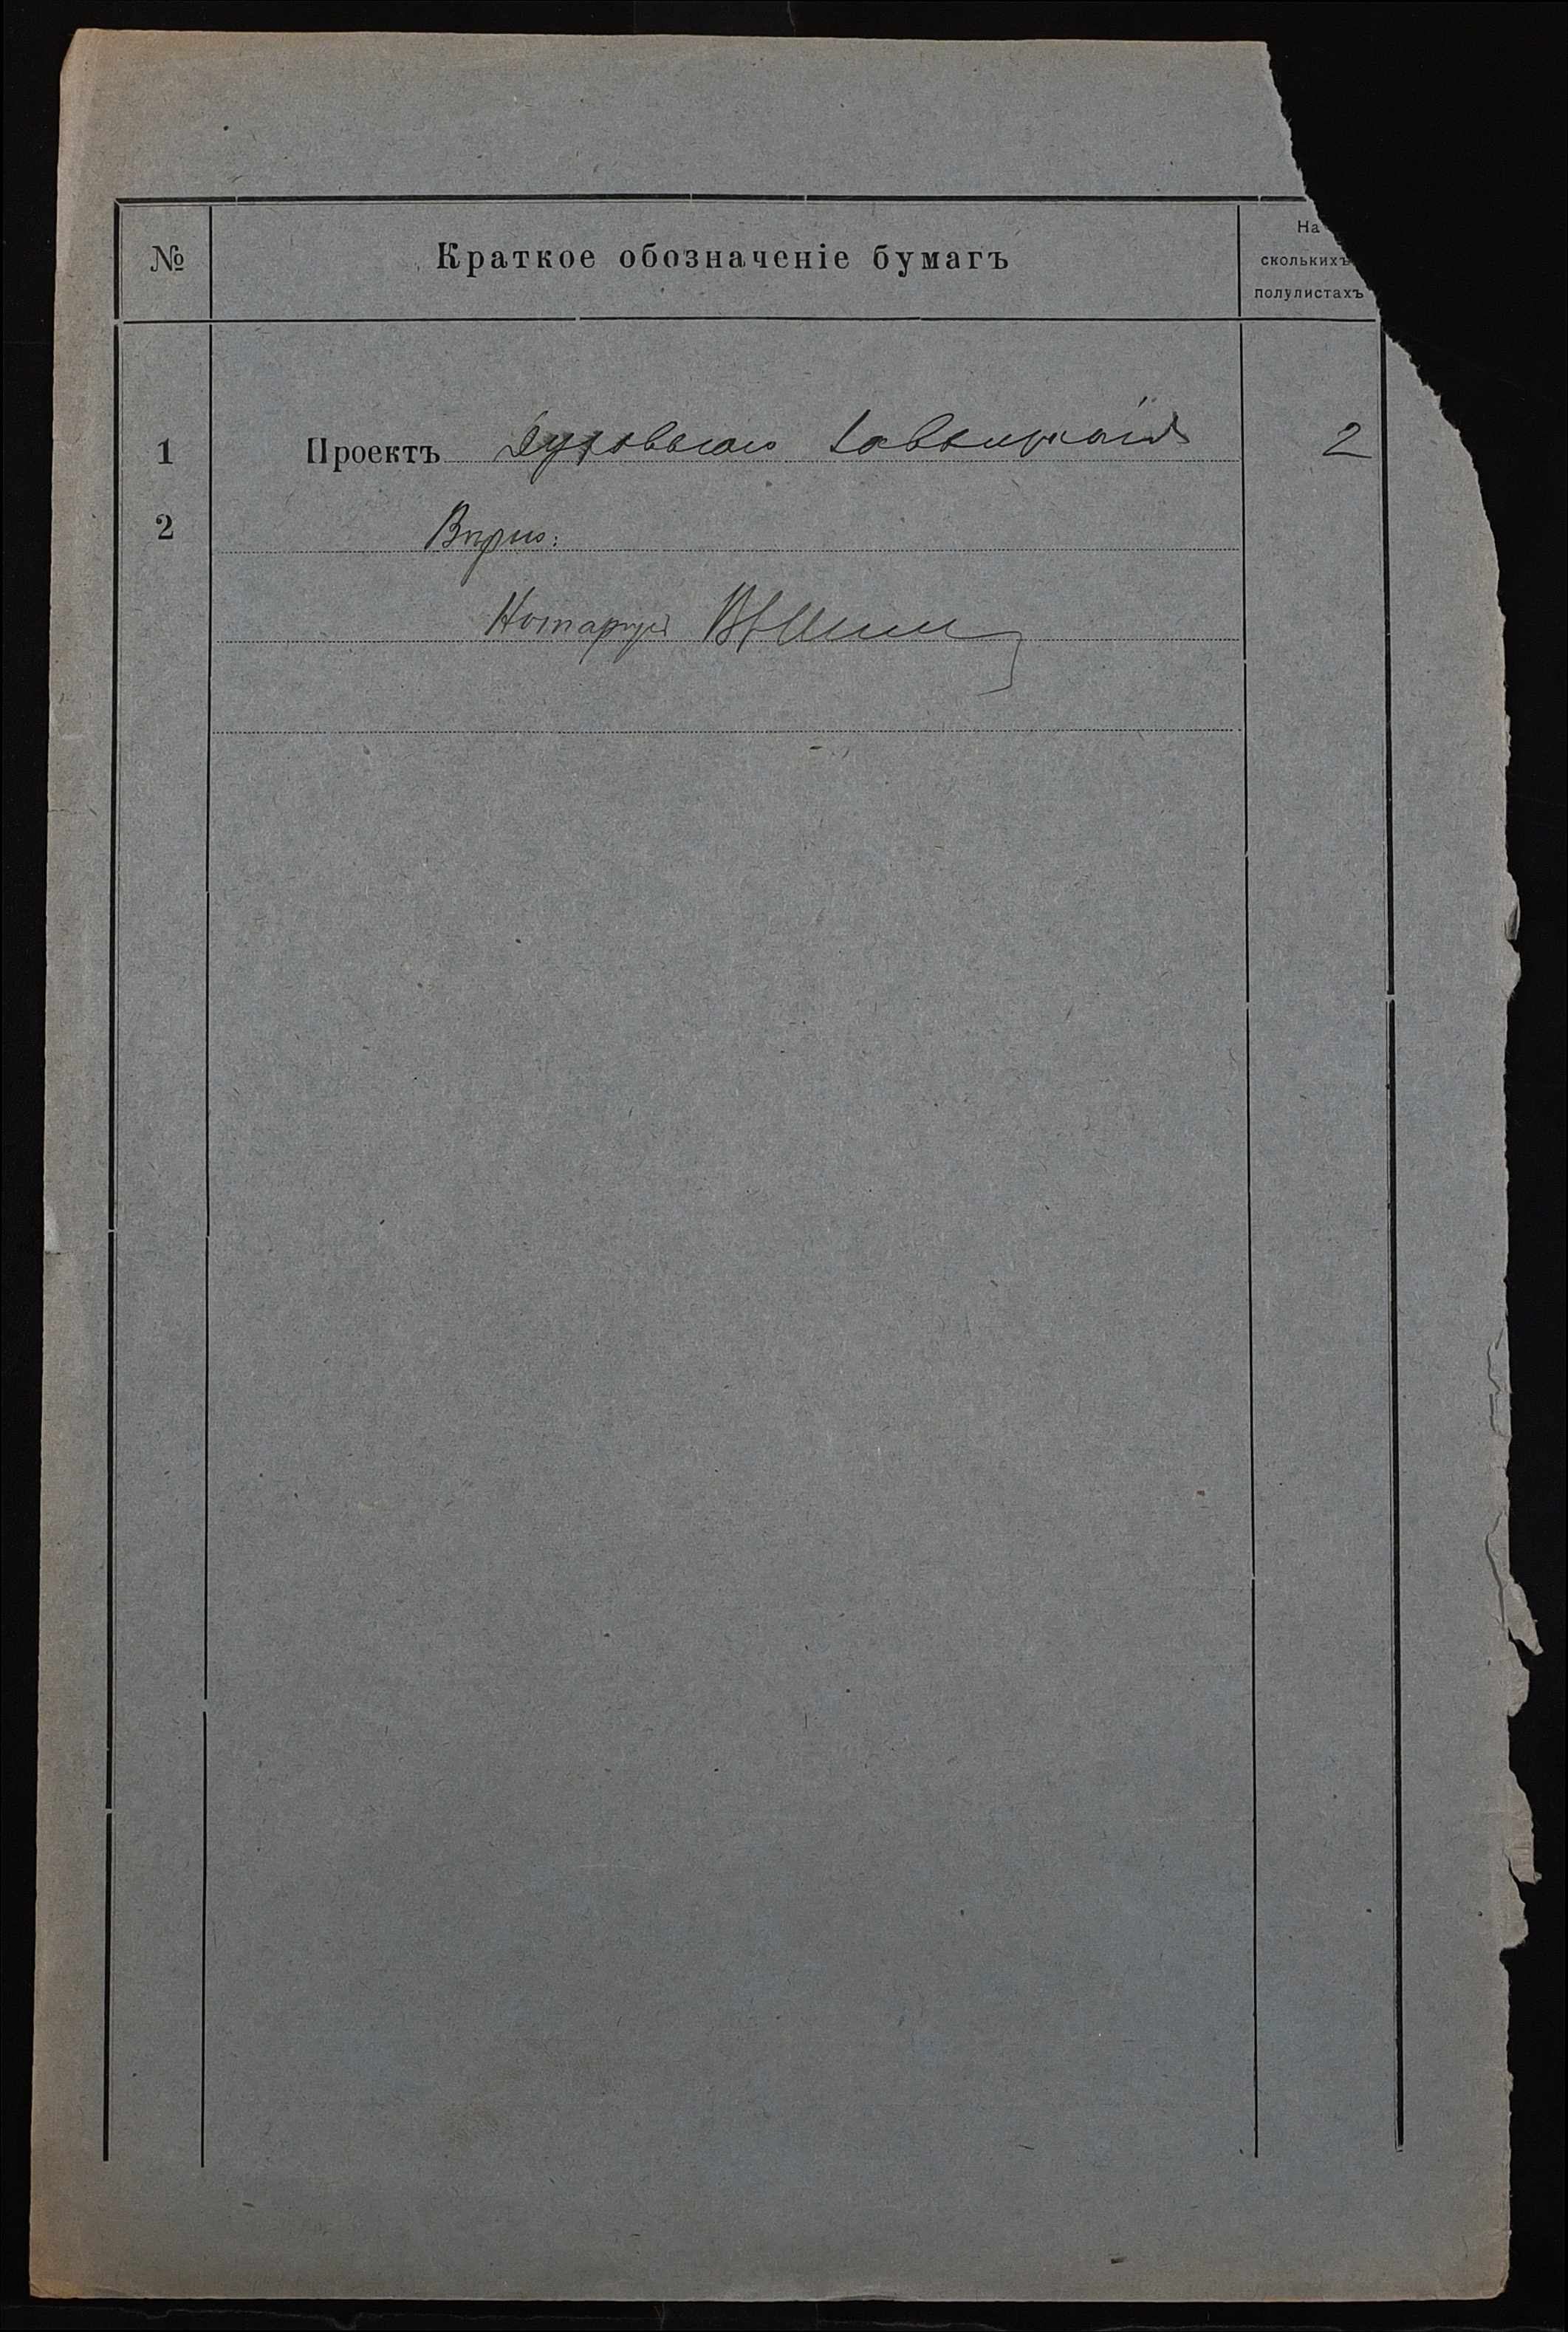 № Краткое обозначеніе бумагъ На
сколькихъ
полулистахъ
1 Проектъ духовнаго завѣщанія 2
2 Вѣрно:
Нотаріусъ